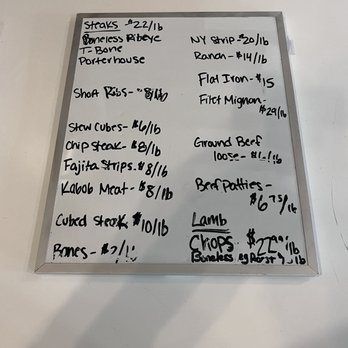 Steaks - $22/lb
Boneless Ribeye
T-Bone
Porterhouse
Short Ribs - $8/lb
Stew Cubes - $6/lb
Chip Steak - $8/lb
Fajita Strips - $8/lb
Kabob Meat - $8/lb
Cubed Steak $10/lb
Bones -
NY Strip - $20/lb
Ranch - $14/lb
Flat Iron - $15
Filet Mignon -
$29/lb
Ground Beef
loose -
Beef Patties -
$6.75/lb
Lamb
Chops - /lb
Boneless